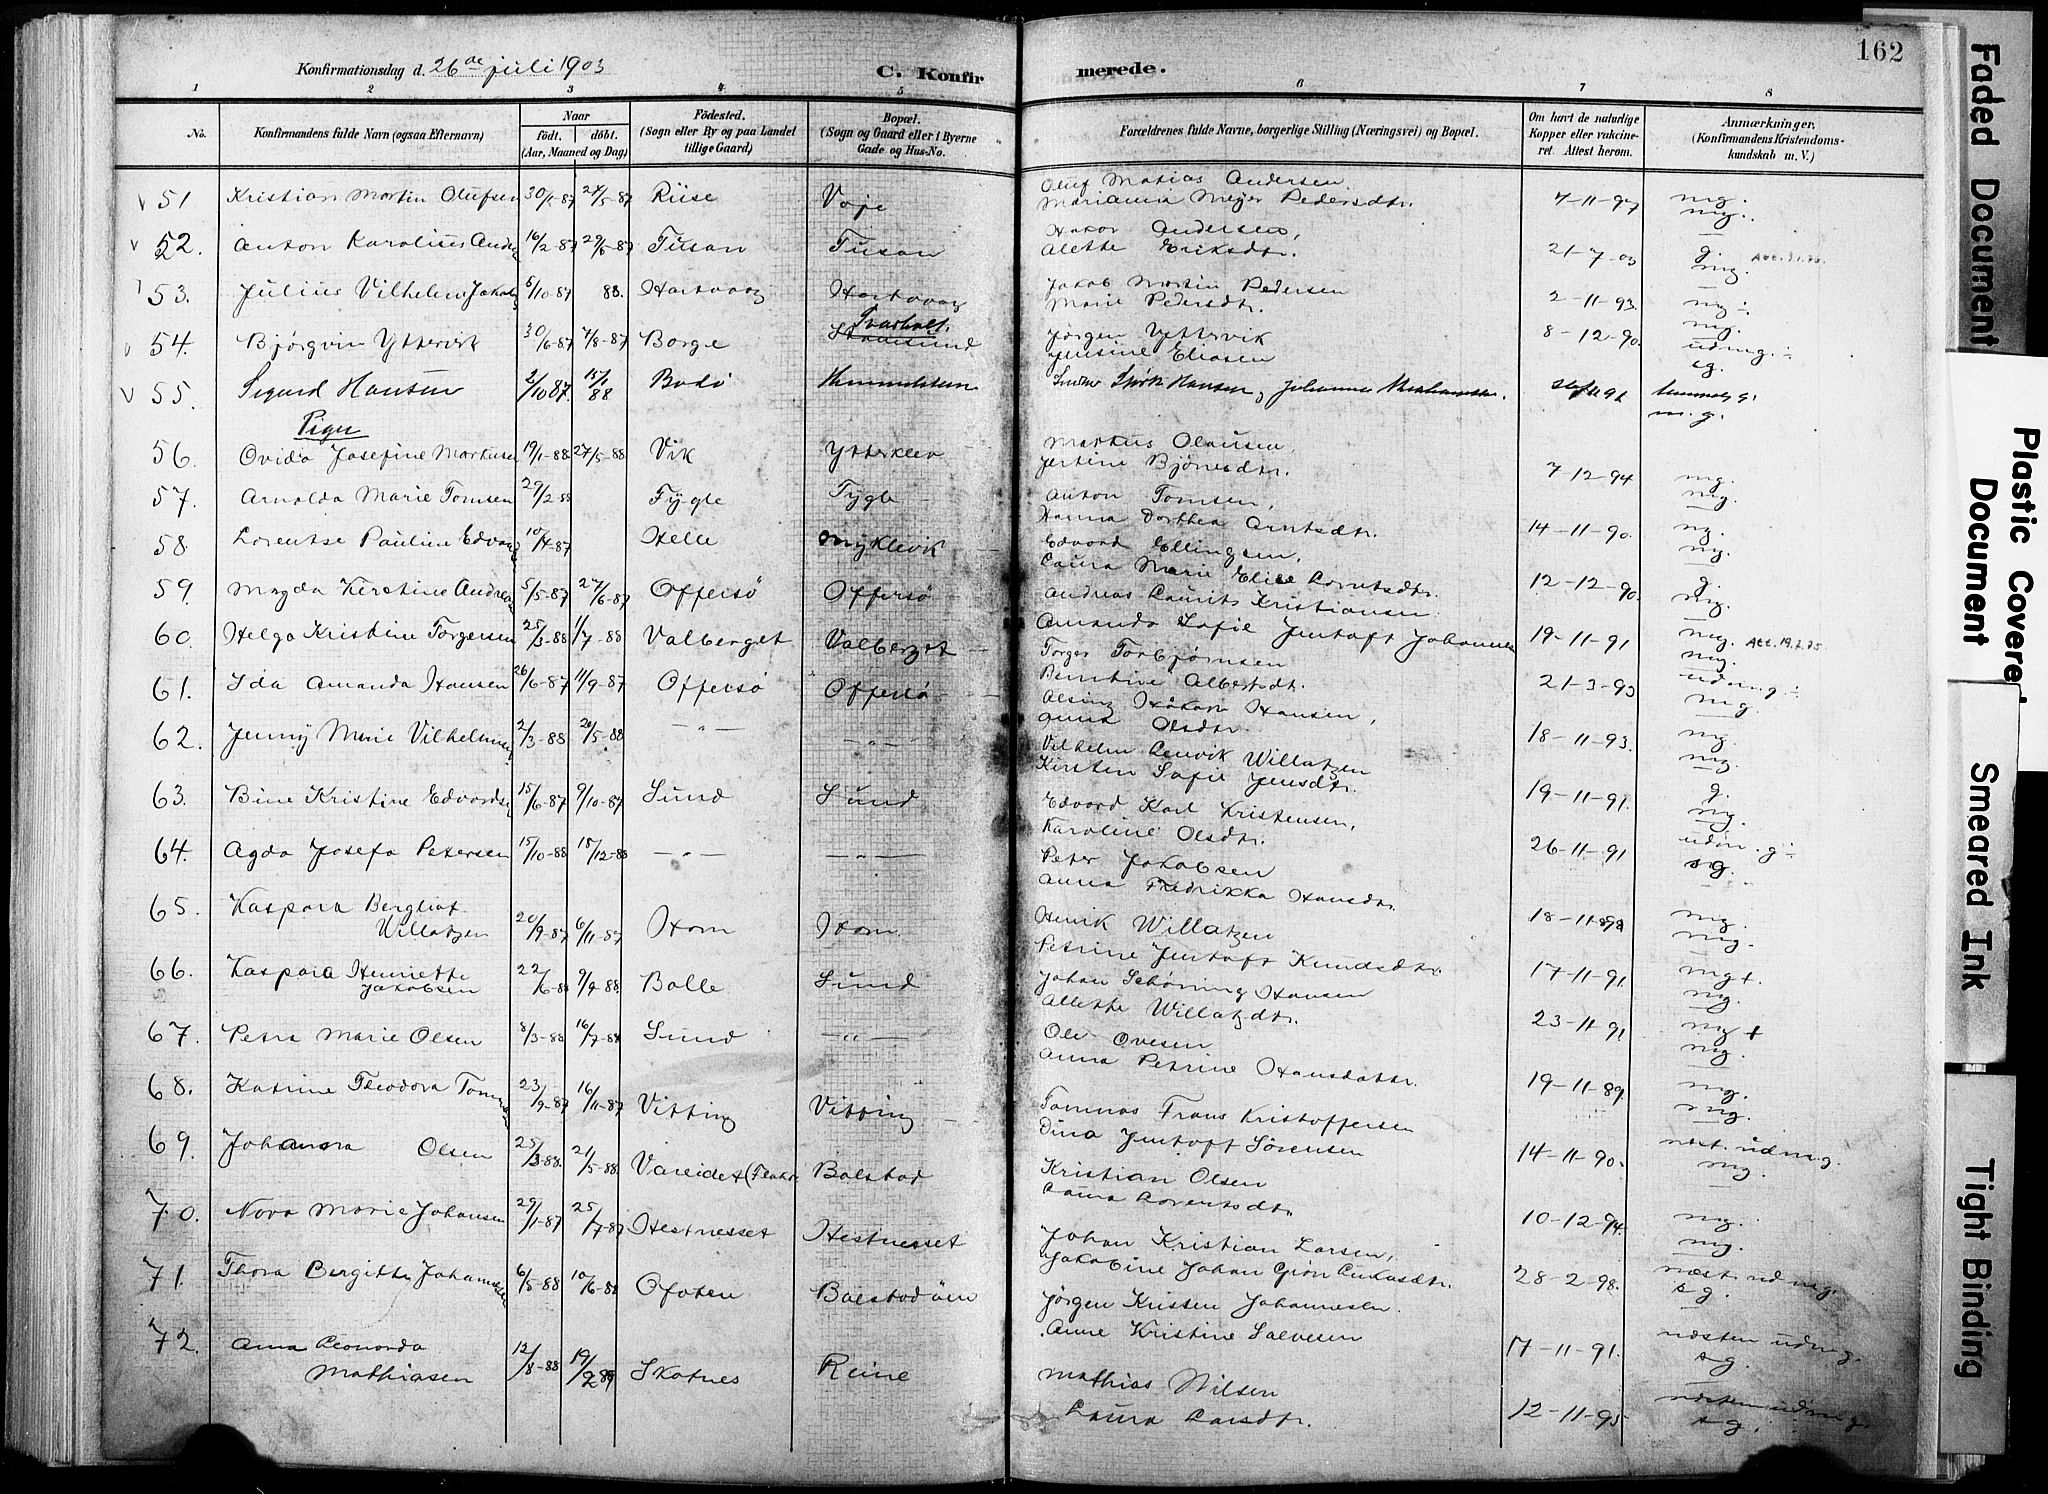 162
Konfirmationsdag d. 26de juli 1903
C. Konfirmerede.
1 2 3 4 5 6 7 8
No.
Konfirmandens fulde Navn (ogsaa Efternavn)
Naar
födt. döbt.
(Aar, Maaned og Dag)
Födested.
(Sogn eller By og paa Landet
tillige Gaard)
Bopæl.
(Sogn og Gaard eller i Byerne
Gade og Hus-No.
Forældrenes fulde Navne, borgerlige Stilling (Næringsvei) og Bopæl.
Om havt de naturlige
Kopper eller vakcineret. Attest herom.
Anmærkninger,
(Konfirmandens Kristendomskundskab m. V.)
51 Kristian Martin Olufsen 30/1-87 27/5-87 Riise Voje Oluf Matias Andersen Marianna Meyer Pedersdtr. 7-11-97 mg. mg.
52. Anton Karolius Anders 16/2-87 29/6-87 Tusan Tusan Hakor Andersen, Alette Eriksdtr. 21-7-03 g. mg.
53. Julius Vilhelm Jakobs 6/10-87 88. Hartvaag Hartvaag Jakob Martin Pedersen Marie Pedersdtr. 2-11-93 mg - mg.
54. Björgvin Yttervik 30/6-87 7/8-87 Borge Svarholt. Stamsund Jörgen Yttervik Jensine Eliasen 8-12-90. udm.g. - sg.
55. Sigurd Hansen 2/10 87. 15/1 88 Bodö m.g.
Piger
56. Ovida Josefine Markusen 19/1-88 27/5-88 Vik Ytterklev Markus Olausen, Jertine Bjönesdtr. 7-12-94 mg. mg.
57. Arnolda Marie Tomsen 29/2 88 Fygle Fygle Anton Tomsen, Hanna Dorthea Arntsdtr. 14-11-90. mg. mg.
58 Lorentse Pauline Edvards 10/4-87 Helle Myklevik Edvard Ellingsen, Laura Marie Elise Lorntsdtr. 12-12-90. g. mg.
59. Magda Kirstine Andreas 5/5-87 27/6-87 Offersö Offersö Andreas Laurits Kristiansen Amanda Sofie Jentoft Johannes 19-11-91 mg. mg. Att. 19.2.75.
60. Helga Kristine Torgersen 25/3-88 1/7-88 Valberget Valberget Torger Torbjörnsen Berntine Albertsdtr. 21-3-93 udm.g - mg.
61. Ida Amanda Hansen 26/6-87 11/9-87 Offersö Offersö Alsing Håkon Hansen, Anna Olsdtr. 18-11-93. mg. mg.
62. Jenny Marie Vilhelmsen 2/3-88 20/5-88 — " — — " — Vilhelm Lenvik Willatzen Kirsten Sofie Jensdtr. 19-11-91. g. mg.
63. Bine Kristine Edvardsen 15/6-87 9/10-87 Sund Sund Edvard Karl Kristensen, Karoline Olsdtr. 26-11-91 udm.g - sg.
64. Agda Josefa Petersen 15/10-88 18/12-88 — " — — " — Peter Jakobsen Anna Fredrikka Hansdtr. 18-11-898 mg. mg.
65. Kaspara Bergliot
Willatzen 20/9-87 6/11-87 Horn Horn Henrik Willatzen Petrine Jentoft Knudsdtr. 17-11-91 mg +. mg.
66. Kaspara Henriette
Jakobsen 22/6-88 9/9-88. Bolle Sund Johan Schöning Hansen Allette Willatzdtr. 23-11-91 mg + mg.
67. Petra Marie Olsen 8/3-88 16/7-88 Sund — " — Ole Ovesen Anna Petrine Hansdattr. 19-11-89 mg. mg.
68. Katrine Theodora Tommas 23/9-87 16/11-87 Vitting Vitting Tommas Frans Kristoffersen Dina Jentoft Sörensen 14-11-90. næst. udm.g. mg.
69. Johanna Olsen 25/3-88. 21/5-88. Vareidet (Flakst. Balstad Kristian Olsen Laura Lorentsdtr. 10-12-94. mg. mg.
70. Nora Marie Johansen 29/1-87 25/7-87 Hestnesset Hestnesset Johan Kristian Larsen, Jakobine Johan Grön Lukasdtr. 28-2-98. næst. udmg. sg.
71. Thora Bergitte Johannesen 6/5-88 10/6-88 Ofoten Balstadöen Jörgen Kristen Johannesen. Anne Kristine Salvesen 17-11-91. næsten udm.g. sg.
72. Anna Leonarda
Mathiasen 12/8-88 19/2 89 Skotnes Reine Mathias Nilsen Laura Larsdtr. 12-11-95 næsten udm.g. sg.
Faded Document
Plastic Covered Document
Smeared Ink
Tight Binding